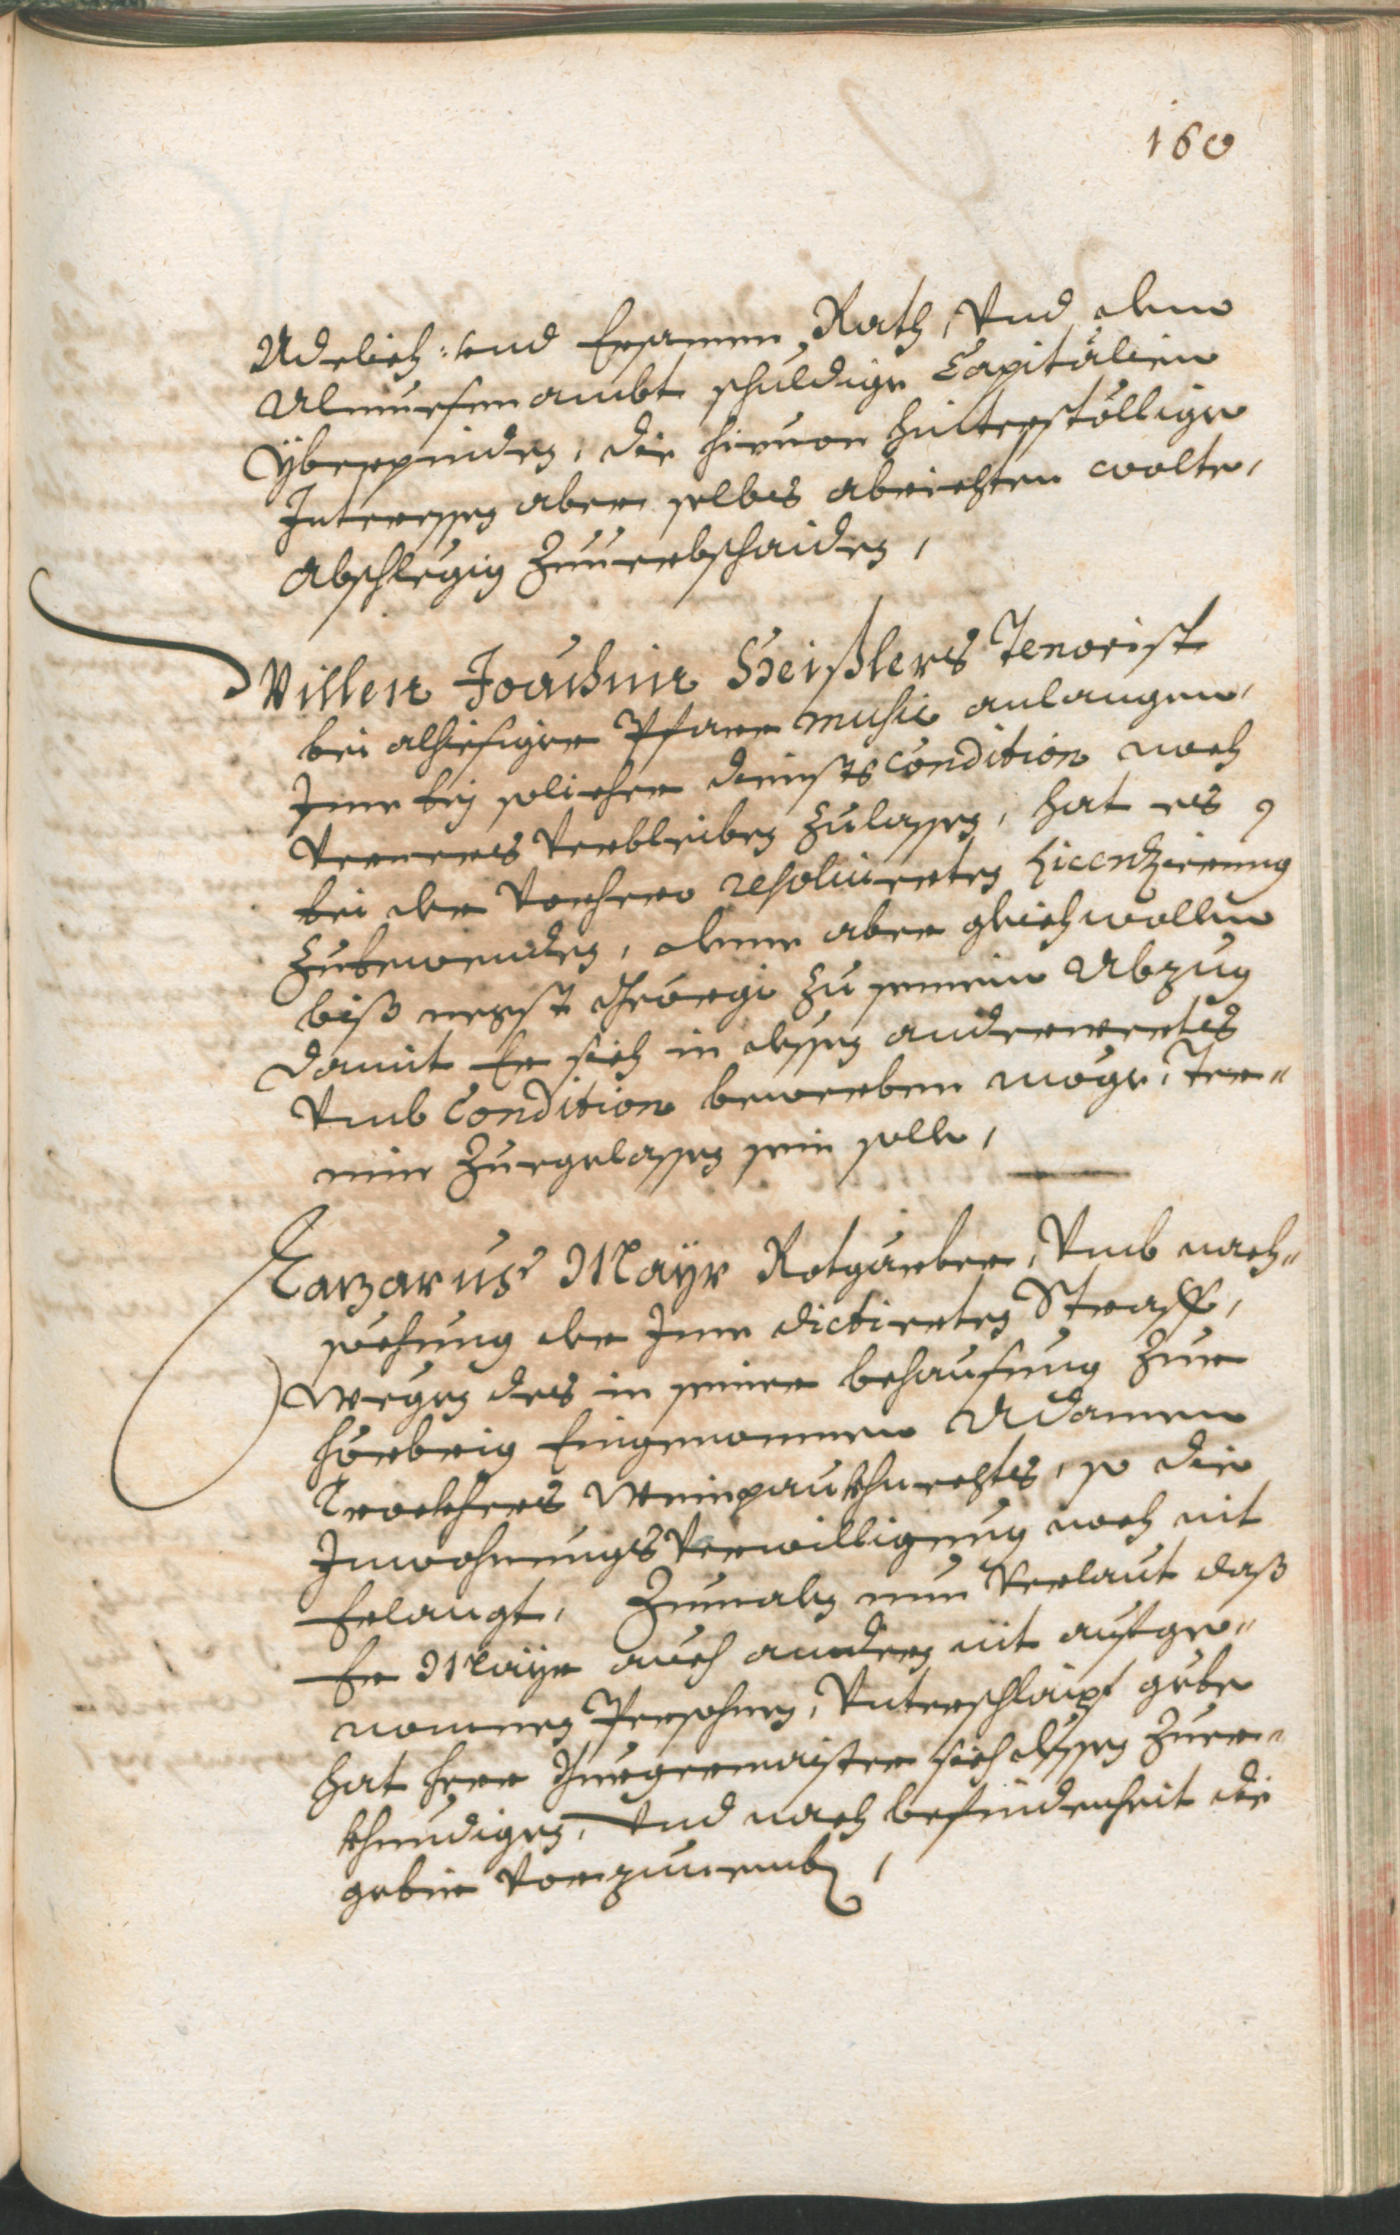 160
Adelich: und Ersamen Rath, Vnd dem
Almuesenambt schuldige Capitalien
Yberpinden, die hieuon hinterstöllige
Interessen aber selbs abrichten wolte,
Abschlegig Zuuerbschaiden,
Willen Joachim Heißlers Tenorist
bei alhiesiger Pfarr music anlangen,
Jme bey solicher diensts Condition noch
Verners Verbleiben Zulassen, hat es
bei der Vorhero resoluierten Licenzierung
Zubewenden, deme aber gleichwollen
biß negst Georgi Zu seinem Abzug
damit Er sich in dessen anderwerts
Vmb Condition bewerben möge, Ter-
min Zuegelassen sein solle,
Lazarus Mayr Rotgärber, Vmb nach-
sehung der Jme dictierten Straff,
wegen des in seiner behausung Zur
Herbrig Eingenommen Adamen
Weinpaukhnechts, so die
Inwohnungs Verwilligung noch nit
Erlangt, Zumaln nun Verlaut daß
Er Mayr auch andern nit aufge-
nomnen Persohnen, Vnterschlaipf gebe
hat Herr Burgermaister sich dessen Zuer-
khundigen, Vnd nach befindenheit die
gebür Vorzunemben,